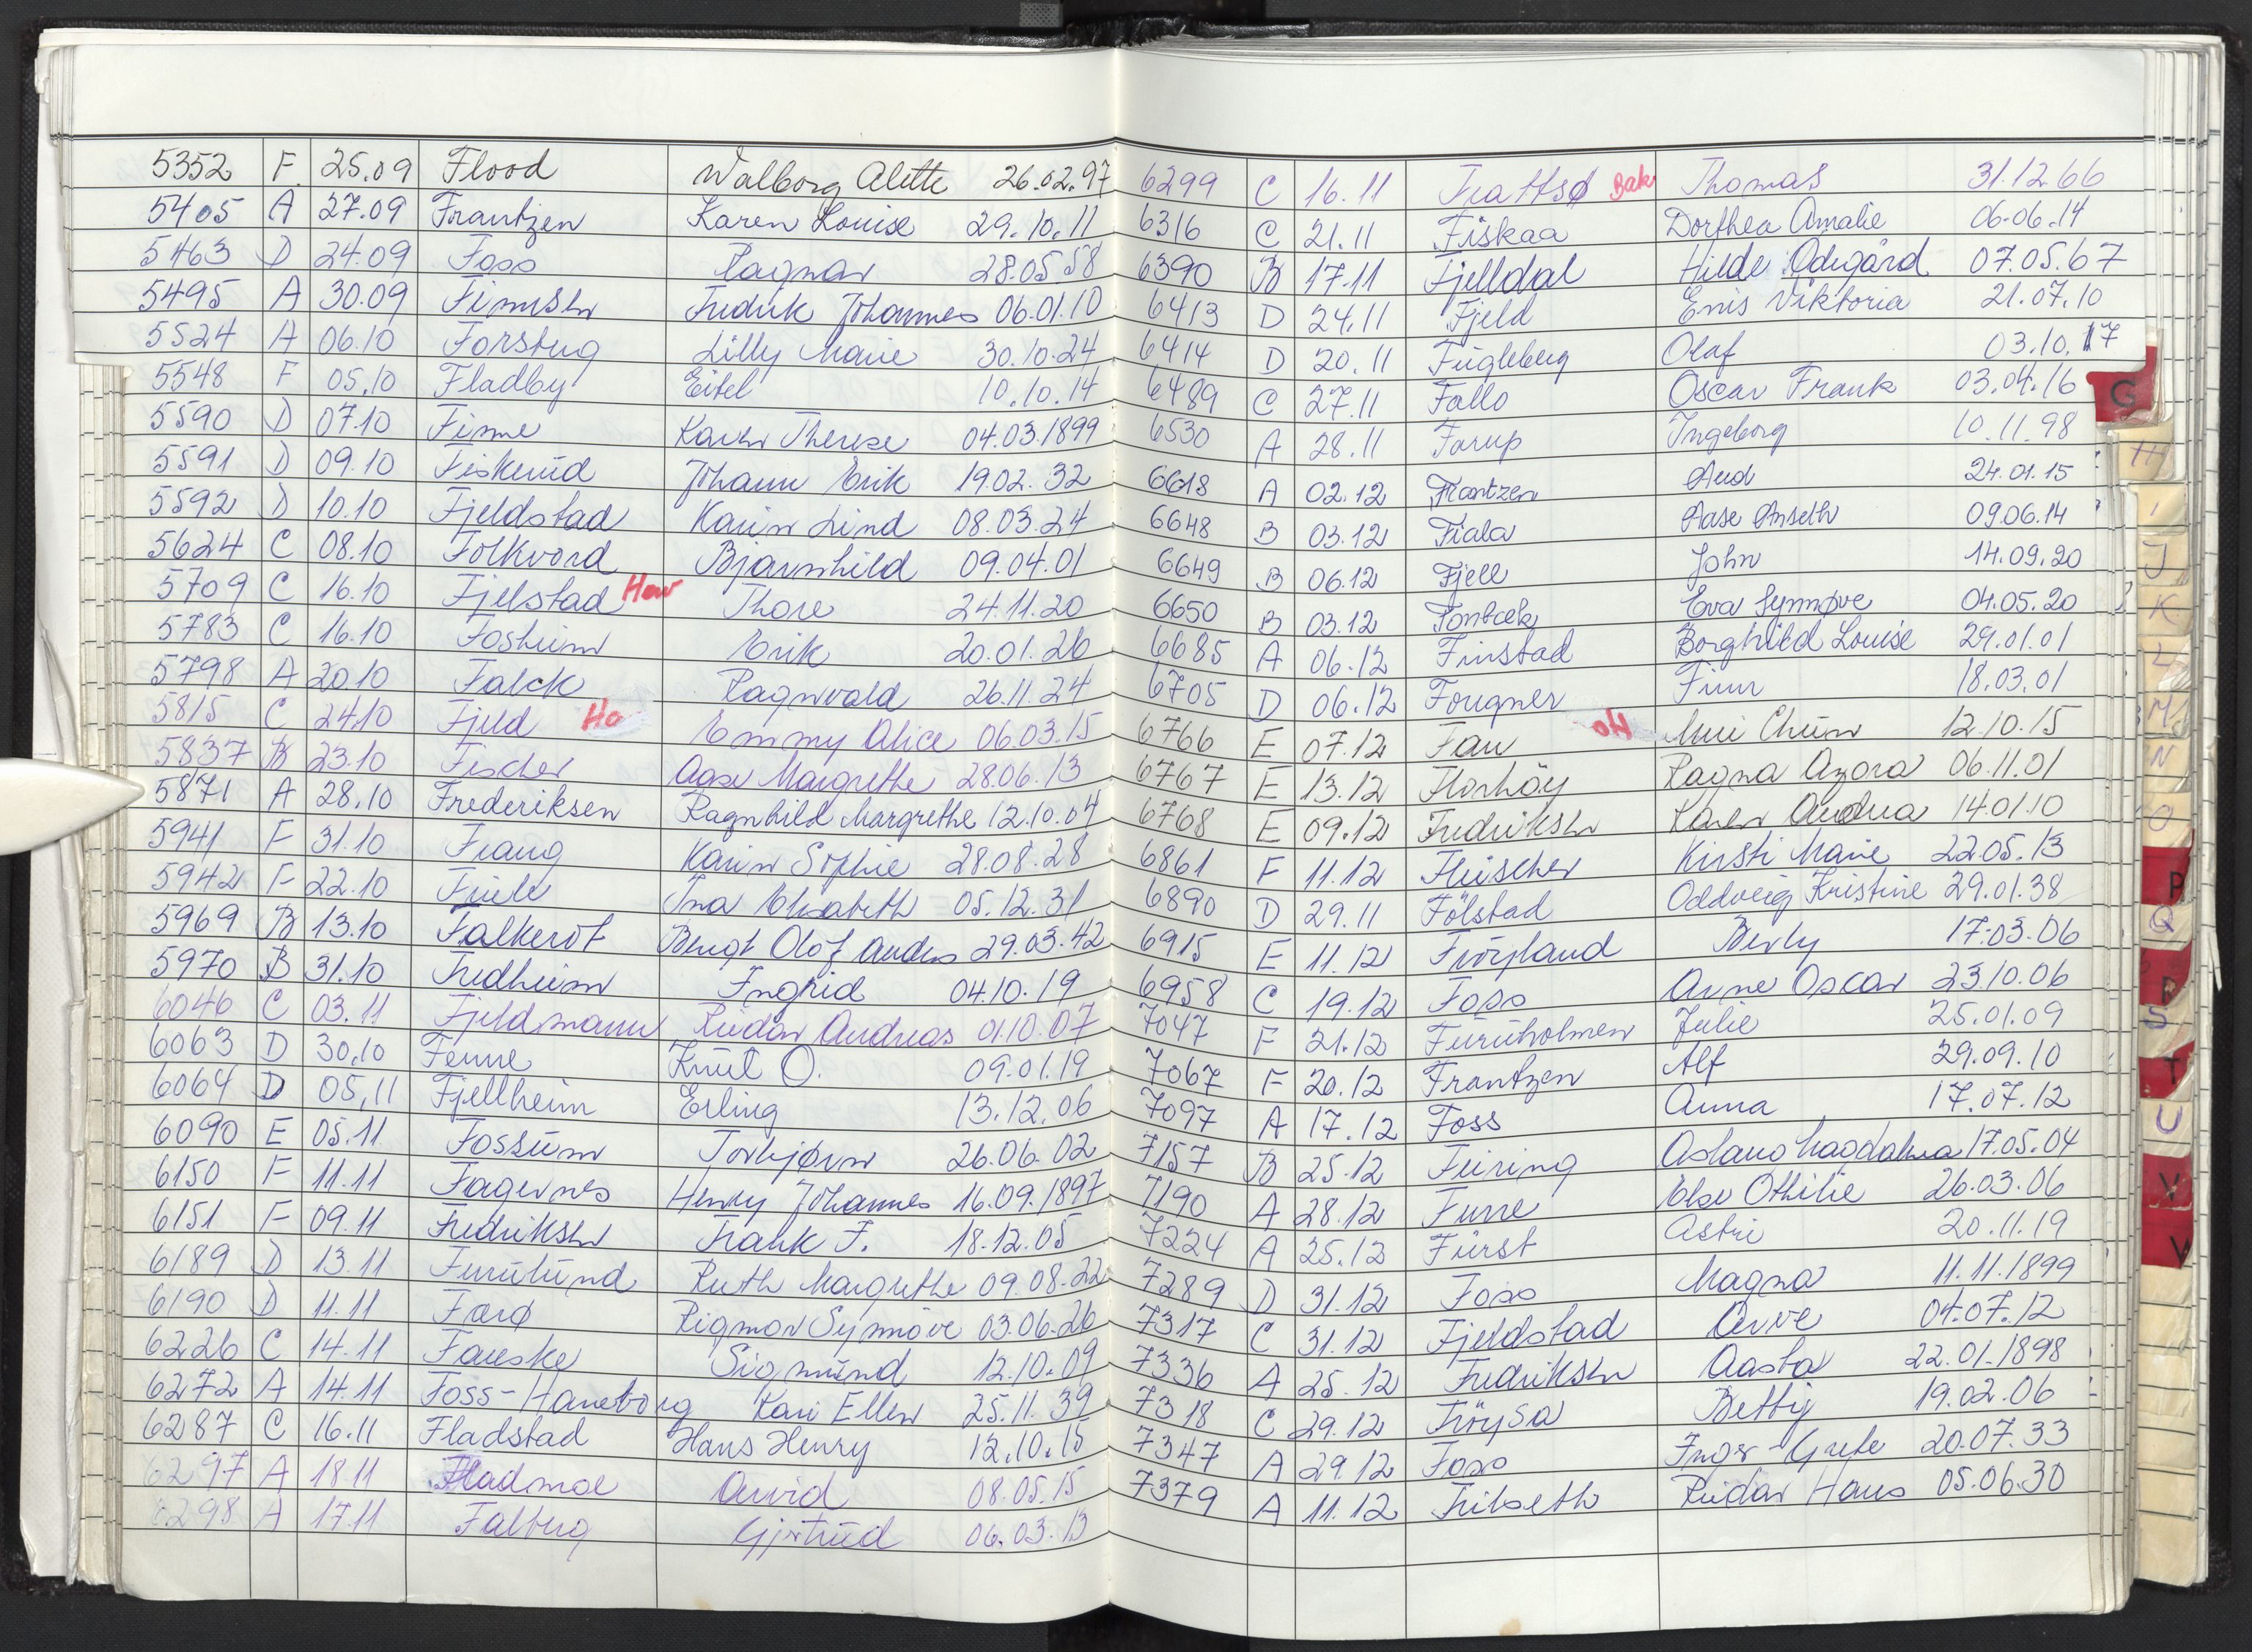 5352 F. 25.09 Flood Walborg Alette 26.02.97
5405 A 27.09 Frantzen Karen Louise 29.10.11
5463 D 24.09 Foss Ragnar 28.05.58
5495 A 30.09 Finnsen Fredrik Johannes 06.01.10
5524 A 06.10 Forsberg Lilly Marie 30.10.24
5548 F 05.10 Fladby Eitel 10.10.14
5590 D 07.10 Finne Karen Therese 04.03.1899
5591 D 09.10 Fiskerud Johann Erik 19.02.32
5592 D 10.10 Fjeldstad Karin Lind 08.03.24
5624 C 08.10 Folkvord Bjarnhild 09.04.01
5709 C 16.10 Fjelstad Thore 24.11.20
5783 C 16.10 Fosheim Erik 20.01.26
5798 A 20.10 Falck Ragnvald 26.11.24
5815 C 24.10 Fjeld Ho Emmy Alice 06.03.15
5837 B 23.10 Fischer Aase Margrethe 28.06.13
5871 A 28.10 Frederiksen Ragnhild Margrethe 12.10.04
5941 F 31.10 Frang Karin Sophie 28.08.28
5942 F 22.10 Friele Ina Elisabeth 05.12.31
5969 B 13.10 Falkerot Bengt Olof Anders 29.03.42
5970 B 31.10 Fredheim Ingrid 04.10.19
6046 C 03.11 Fjeldmann Reidar Andreas 01.10.07
6063 D 30.10 Fenne Knut O. 09.01.19
6064 D 05.11 Fjellheim Erling 13.12.06
6090 E 05.11 Fossum Torbjørn 26.06.02
6150 F 11.11 Fagernes Henry Johannes 16.09.1897
6151 F 09.11 Fredriksen Frank F. 18.12.05
6189 D 13.11 Furulund Ruth Margrethe 09.08.22
6190 D 11.11 Færø Rigmor Synnöve 03.06.26
6226 C 14.11 Fauske Sigmund 12.10.09
6272 A 14.11 Foss-Haneborg Kari Ellen 25.11.39
6287 C 16.11 Fladstad Hans Henry 12.10.15
6297 A 18.11 Fladmoe Arvid 08.05.15
6298 A 17.11 Falberg Gjertrud 06.03.13
6299 C 16.11 Frattsø Bak Thomas 31.12.66
6316 C 21.11 Fiskaa Dorthea Amalie 06.06.14
6390 B 17.11 Fjelldal Hilde Ødegård 07.05.67
6413 D 24.11 Fjeld Enis Viktoria 21.07.10
6414 D 20.11 Fugleberg Olaf 03.10.17
6489 C 27.11 Fallo Oscar Frank 03.04.16
6530 A 28.11 Farup Ingeborg 10.11.98
6618 A 02.12 Frantzen Aud 24.01.15
6648 B 03.12 Fiala Aase Anseth 09.06.14
6649 B 06.12 Fjell John 14.09.20
6650 B 03.12 Fonbæk Eva Synnøve 04.05.20
6685 A 06.12 Finstad Borghild Louise 29.01.01
6705 D 06.12 Fougner Finn 18.03.01
6766 E 07.12 Fan Mui Chun 12.10.15
6767 E 13.12 Florhöy Ragna Azora 06.11.01
6768 E 09.12 Fredriksen Karen Andrea 14.01.10
6861 F 11.12 Fleischer Kirsti Marie 22.05.13
6890 D 29.11 Fölstad Oddveig Kristine 29.01.38
6915 E 11.12 Fröyland Berly 17.03.06
6958 C 19.12 Foss Arne Oscar 23.10.06
7047 F 21.12 Furuholmen Julie 25.01.09
7067 F 20.12 Frantzen Alf 29.09.10
7097 A 17.12 Foss Anna 17.07.12
7157 B 25.12 Feiring Aslaug Magdalena 17.05.04
7190 A 28.12 Furre Else Othilie 26.03.06
7224 A 25.12 Fürst Astri 20.11.19
7289 D 31.12 Foss Magna 11.11.1899
7317 C 31.12 Fjeldstad Arve 04.07.12
7336 A 25.12 Fredriksen Aasta 22.01.1898
7318 C 29.12 Fröysa Betty 19.02.06
7347 A 29.12 Foss Inger-Grete 20.07.33
7379 A 11.12 Frilseth Reidar Hans 05.06.30
G
H
I
J
K
L
M
N
O
P
Q
R
S
T
U
V